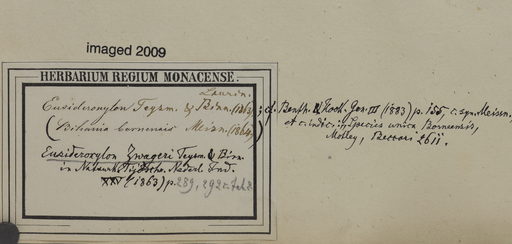 imaged 2009
HERBARIUM REGIUM MONACENSE.
Laurin.
Eusideroxylon Teysm. & Binn. (1863); cf. Benth. & Hook. Gen. III (1883) p. 155, c. syn. Meissn.
(Bihania borneensis Meisn. (1864)) et c. indic.: Species unica Borneensis,
Motley, Beccari 2611.
Eusideroxylon Zwageri Teysm. & Binn.
in Natuurk. Tijdschr. Nederl. Ind.
XXV (1863) p. 289, 292 c. tab.